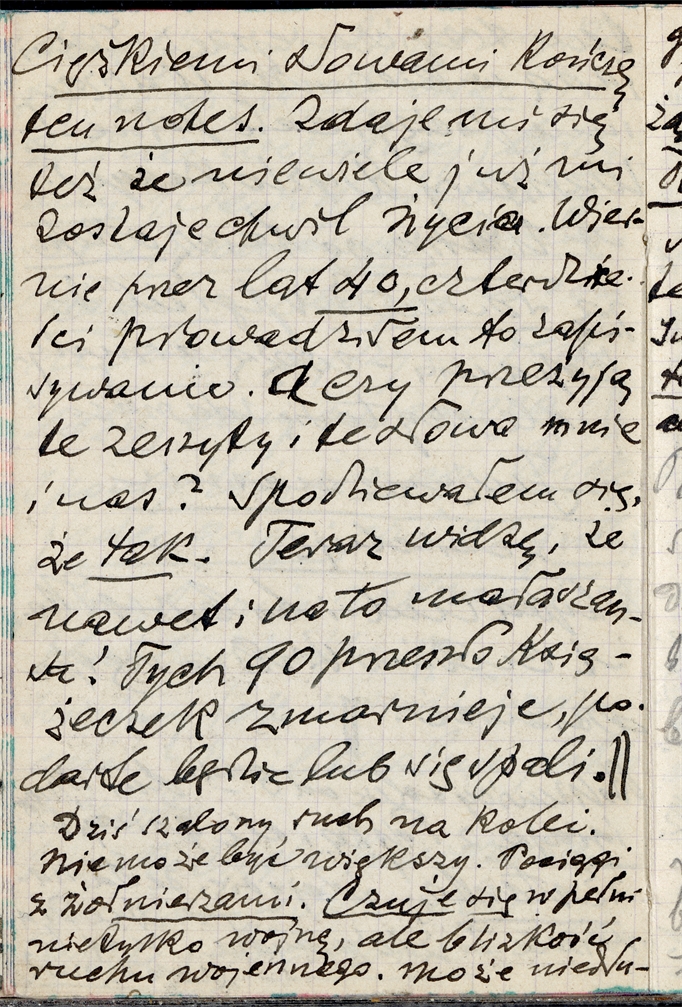 Ciężkiemi słowami kończę
ten notes. Zdaje mi się
też że niewiele już mi
zostaje chwil życia. Wier-
nie przez lat 40, czterdzie-
ści prowadziłem to zapi-
sywanie. A czy przeżyją
te zeszyty i te słowa mnie
i nas? Spodziewałem się,
że tak. Teraz widzę, że
nawet i na to mała szan-
sa! Tych 90 przeszło ksią-
żeczek zmarnieje, po-
darte będzie lub się spali.
Dziś szalony ruch na kolei.
Nie może być większy. Pociągi
z żołnierzami. Czuje się w pełni
nietylko wojnę, ale blizkość
ruchu wojennego. Może niedłu-